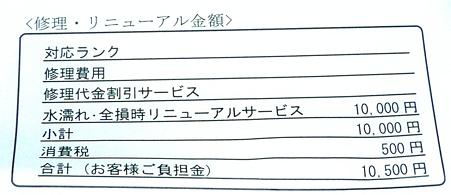 <修理・リニューアル金額>
対応ランク
修理費用
修理代金割引サービス
水濡れ・全損時リニューアルサービス 10,000 円
小計 10,000 円
消費税 500 円
合計 (お客様ご負担金) 10,500 円